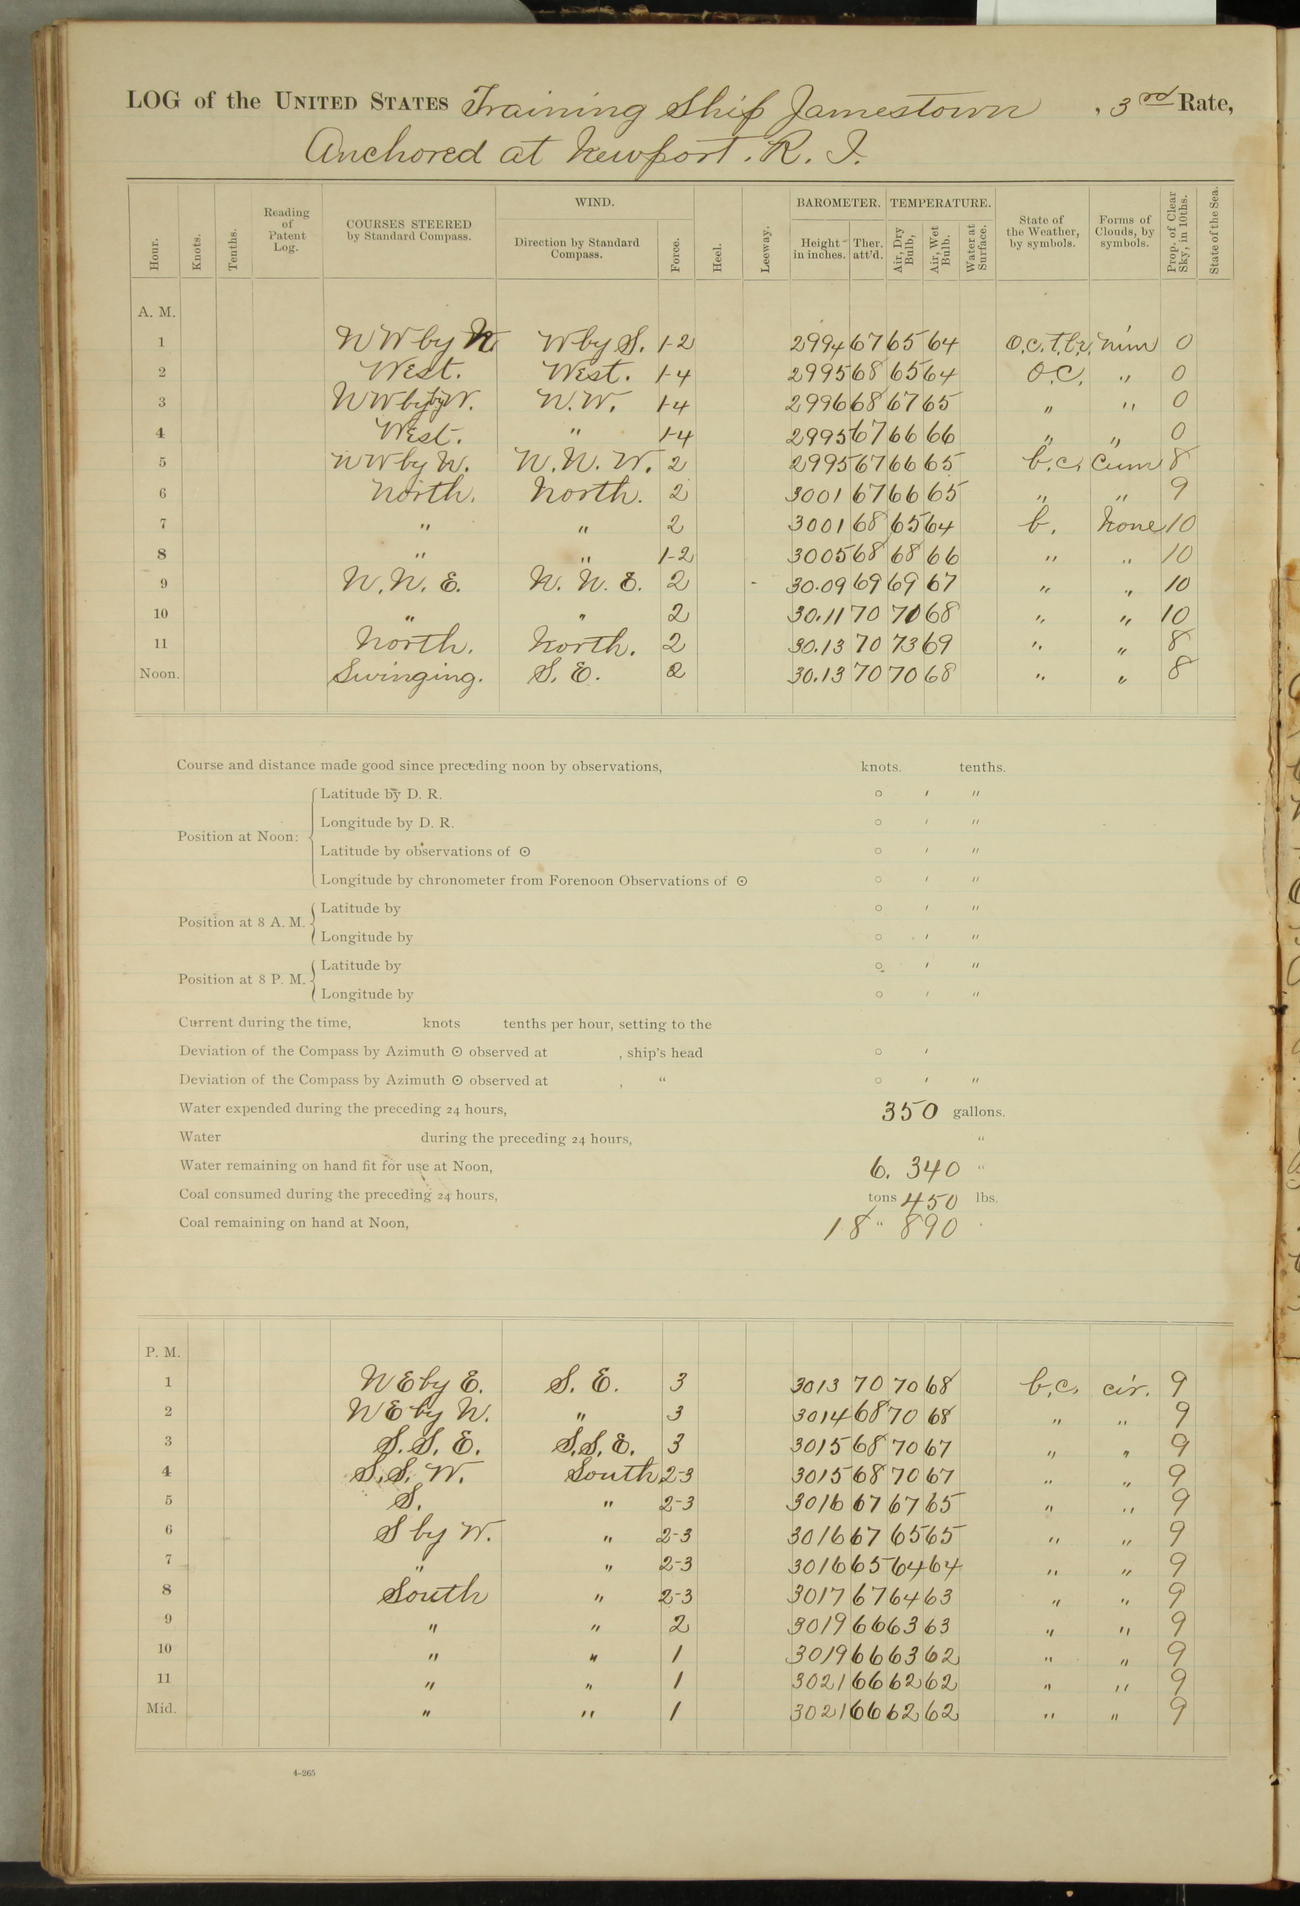 LOG of the UNITED STATES Training Ship Jamestown , 3rd Rate,
Anchored at Newport. R. I.
Hour. Knots. Tenths. Reading of Patent Log. COURSES STEERED by Standard Compass. WIND. Direction by Standard Compass. Force. Heel. Leeway. BAROMETER. Height in inches. Ther. att'd. TEMPERATURE. Air, Dry Bulb, Air, Wet Bulb. Water at Surface. State of the Weather, by symbols. Forms of Clouds, by symbols. Prop. of Clear Sky, in 10ths. State of the Sea.
A. M.
1 NW by N W by S. 1-2 2994 67 65 64 o.c.t.l.r. nim 0
2 West. West. 1-4 2995 68 65 64 O.C. " 0
3 NW by W. N.W. 1-4 2996 68 67 65 " " 0
4 West. " 1-4 2995 67 66 66 " " 0
5 NW by N. N.N.W. 2 2995 67 66 65 b.c. Cum 8
6 North. North. 2 3001 67 66 65 " " 9
7 " " 2 3001 68 65 64 b. None 10
8 " " 1-2 3005 68 68 66 " " 10
9 N.N.E. N.N.E. 2 30.09 69 69 67 " " 10
10 " " 2 30.11 70 70 68 " " 10
11 North. North. 2 30.13 70 73 69 " " 8
Noon. Swinging. S.E. 2 30.13 70 70 68 " " 8
Course and distance made good since preceding noon by observations, knots. tenths.
Position at Noon:
Latitude by D. R. ○ ′ ″
Longitude by D. R. ○ ′ ″
Latitude by observations of ⊙ ○ ′ ″
Longitude by chronometer from Forenoon Observations of ⊙ ○ ′ ″
Position at 8 A. M.
Latitude by ○ ′ ″
Longitude by ○ ′ ″
Position at 8 P. M.
Latitude by ○ ′ ″
Longitude by ○ ′ ″
Current during the time, knots tenths per hour, setting to the
Deviation of the Compass by Azimuth ⊙ observed at , ship's head ○ ′
Deviation of the Compass by Azimuth ⊙ observed at , " ○ ′ ″
Water expended during the preceding 24 hours, 350 gallons.
Water during the preceding 24 hours, "
Water remaining on hand fit for use at Noon, 6. 340 "
Coal consumed during the preceding 24 hours, tons 450 lbs.
Coal remaining on hand at Noon, 18 " 890 "
P. M.
1 NE by E. S.E. 3 3013 70 70 68 b.c. cir. 9
2 NE by N. " 3 3014 68 70 68 " " 9
3 S.S.E. S.S.E. 3 3015 68 70 67 " " 9
4 S.S.W. South 2-3 3015 68 70 67 " " 9
5 S. " 2-3 3016 67 67 65 " " 9
6 S by W. " 2-3 3016 67 65 65 " " 9
7 " " 2-3 3016 65 64 64 " " 9
8 South " 2-3 3017 67 64 63 " " 9
9 " " 2 3019 66 63 63 " " 9
10 " " 1 3019 66 63 62 " " 9
11 " " 1 3021 66 62 62 " " 9
Mid. " " 1 3021 66 62 62 " " 9
4-265